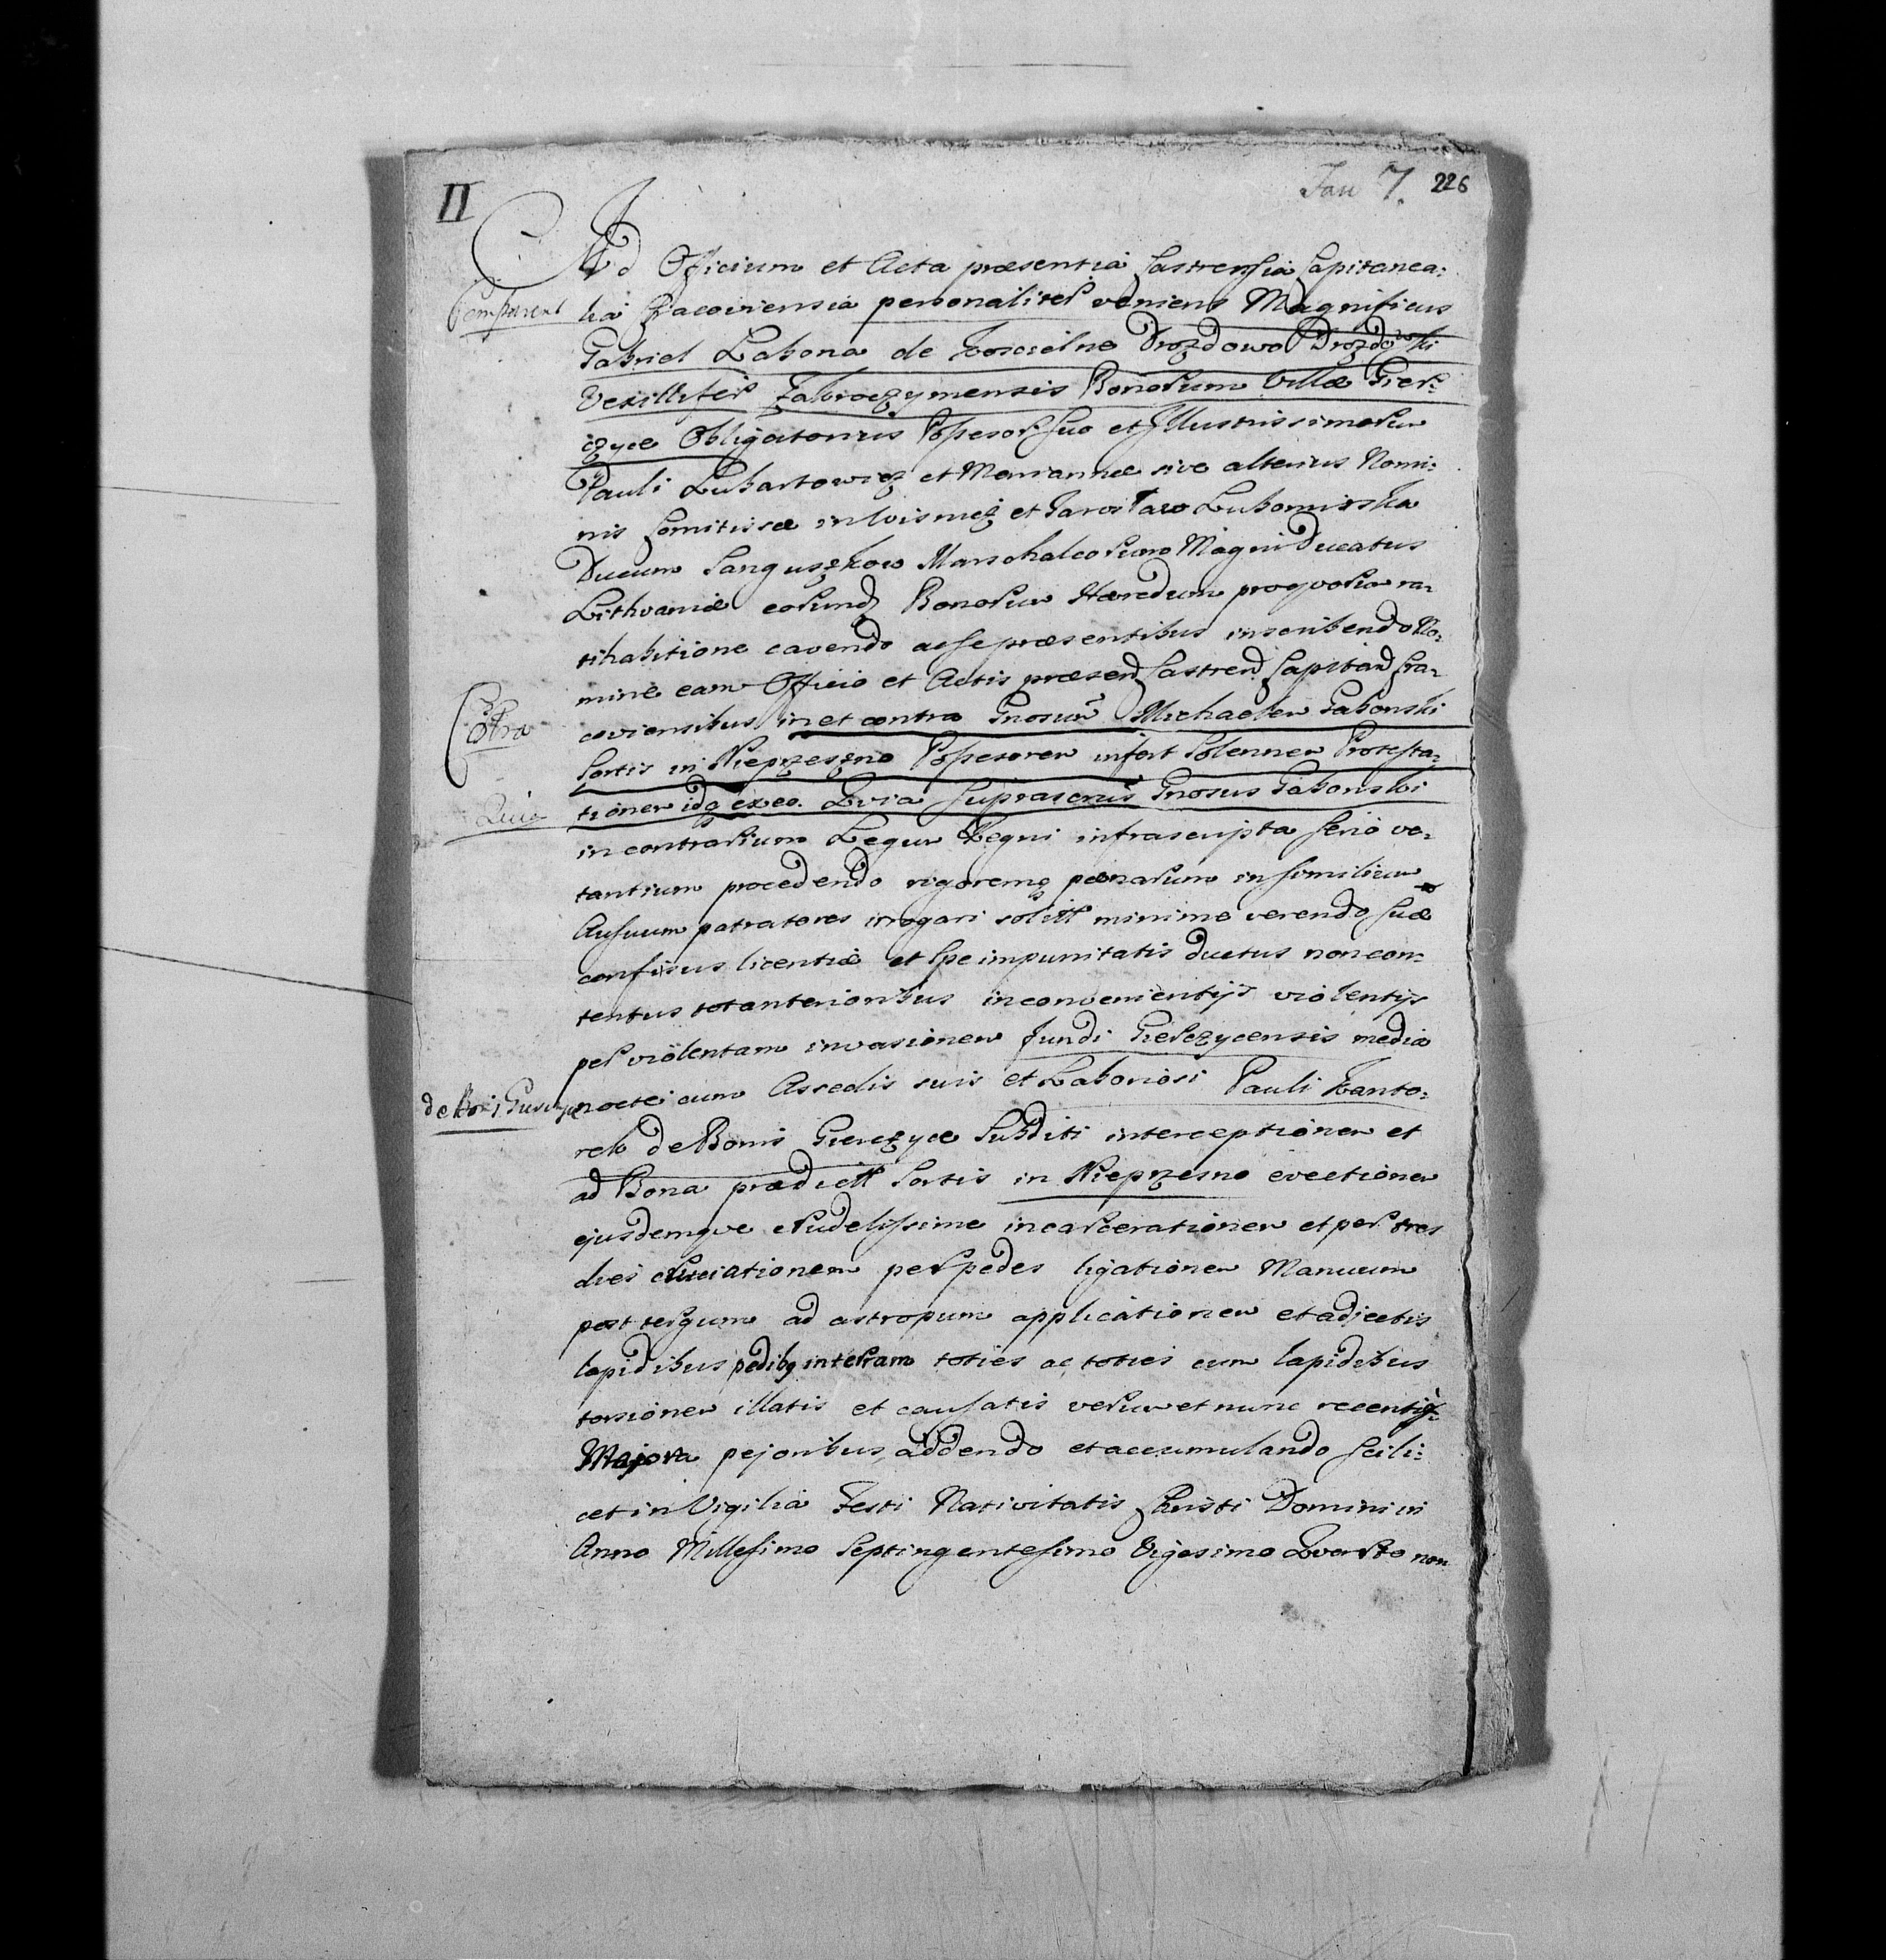 II
Jan 7. 226
Ad Officium et Acta præsentia Castrensia Capitanea:
Comparent
lia Cracoviensia personaliter veniens Magnificus
Gabriel Lakona de Koscielne Drozdowo Drozdowski
Vexillifer Zakroczymensis Bonorum Villæ Gier:
czyce Obligatorius Possesor suo et Illustrissimorum
Pauli Lubartowicz et Mariannæ sive alterius Nomi:
nis Comitissæ in Wisnicz et Jaroslaw Lubomirska
Ducum Sanguszkow Marschalcorum Magni Ducatus
Lithvaniæ eorund Bonorum Hæredum pro quorum ra:
tihabitione cavendo ac se præsentibus inscribendo No:
mine eam Officio et Actis præsend Castrend Capitand Cra:
Cotra
coviensibus in et contra Gnosum Michaelem Gabonski
Sortis in Nieprzeszno Possesorem infert Solennem Protesta:
Quia
tionem idq ex eo. Qvia suprascrus Gnosus Gabonski
in contrarium Legum Regni infrascripta serio ve:
tantium procedendo rigoremq pænarum in similium
Ausuum patratores irrogari solitt minime verendo suæ
confisus licentiæ et spe impunitatis ductus non con:
tentus tot anterioribus inconvenientijs violentijs
per violentam invasionem fundi Gierczycensis media
de Bonis Gierczyce
nocte cum Asseclis suis et Laboriosi Pauli Kanto:
rek de Bonis Gierczyce Subditi interceptionem et
ad Bona prædictt Sortis in Nieprzesno evectionem
ejusdemqve crudelissime incarcerationem et per tres
dies cruciationem per pedes ligationem Manuum
post tergum ad astropum applicationem et adjectis
lapidibus pedibq interram toties ac toties cum lapidibus
torsionem illatis et causatis verum et nunc recentiq:
Majora pejoribus addendo et accumulando scili:
cet in Vigilia Festi Nativitatis Christi Domini in
Anno Millesimo Septingentesimo Vigesimo Qvarto non